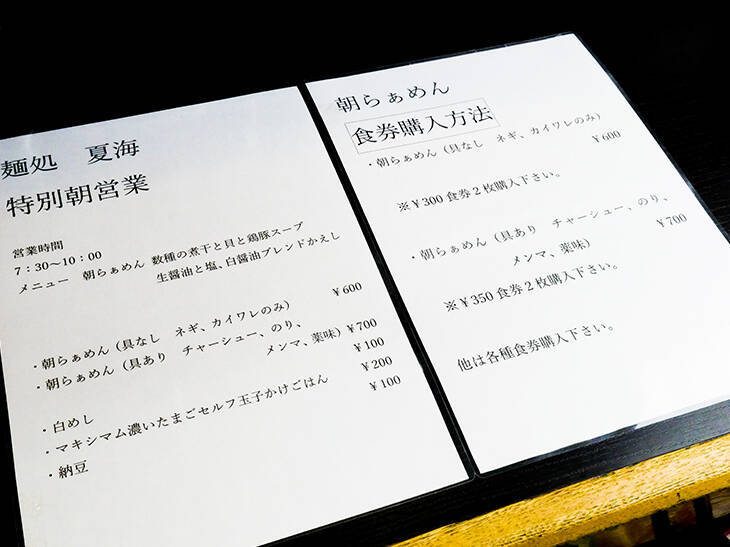 麺処　夏海
特別朝営業
営業時間
7：30〜10：00
メニュー　朝らぁめん 数種の煮干と貝と鶏豚スープ
生醤油と塩、白醤油ブレンドかえし
・朝らぁめん（具なし　ネギ、カイワレのみ） ¥600
・朝らぁめん（具あり　チャーシュー、のり、
メンマ、薬味）¥700
・白めし ¥100
・マキシマム濃いたまごセルフ玉子かけごはん ¥200
・納豆 ¥100
朝らぁめん
食券購入方法
・朝らぁめん（具なし　ネギ、カイワレのみ） ¥600
※¥300 食券２枚購入下さい。
・朝らぁめん（具あり　チャーシュー、のり、 ¥700
メンマ、薬味）
※¥350 食券２枚購入下さい。
他は各種食券購入下さい。